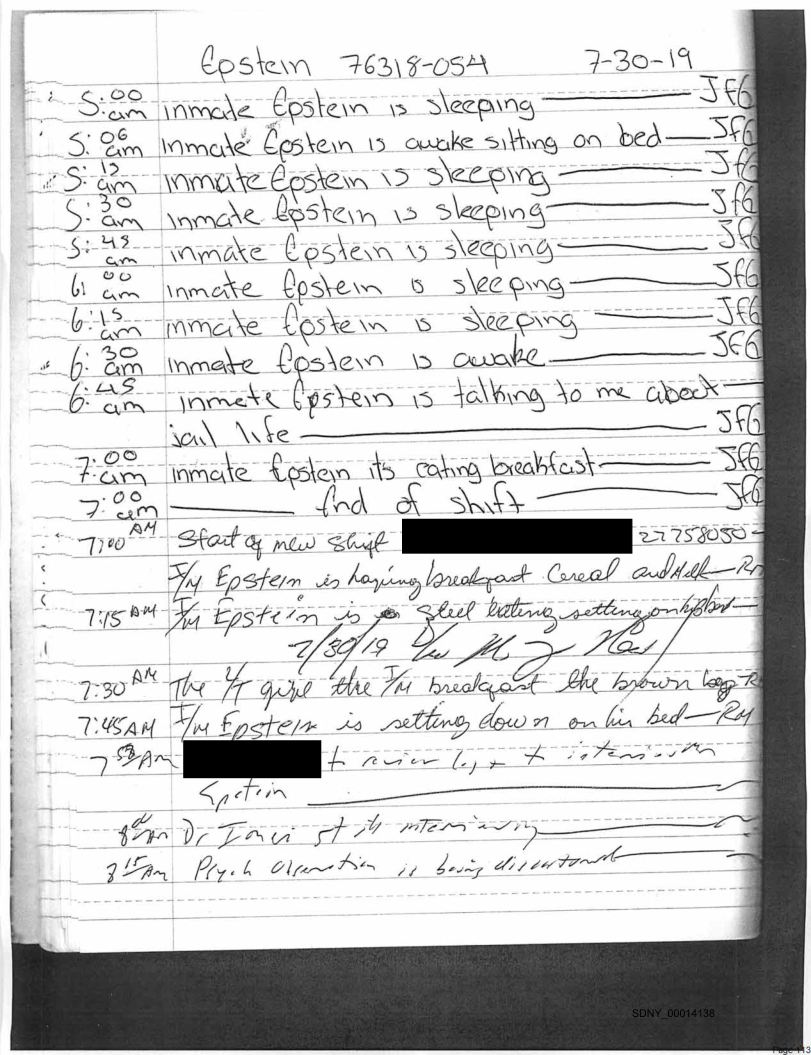 Epstein 76318-054 7-30-19
5:00 am inmate Epstein is sleeping JfG
5:06 am inmate Epstein is awake sitting on bed JfG
5:15 am inmate Epstein is sleeping JfG
5:30 am inmate Epstein is sleeping JfG
5:45 am inmate Epstein is sleeping JfG
6:00 am inmate Epstein is sleeping JfG
6:15 am inmate Epstein is sleeping JfG
6:30 am inmate Epstein is awake JfG
6:45 am inmate Epstein is talking to me about
jail life JfG
7:00 am inmate Epstein its eating breakfast JfG
7:00 am End of shift JfG
7:00 AM Start of new shift 27758050
I/M Epstein is having breakfast Cereal and Milk RM
7:15 AM I/M Epstein is eating setting on his bed
7/30/19
7:30 AM The give the I/M breakfast the brown bag R
7:45 AM I/M Epstein is setting down on his bed RM
AM to review log +
Epstein
Dr
8 15 AM Psych Observation is being
SDNY_00014138
Page 113